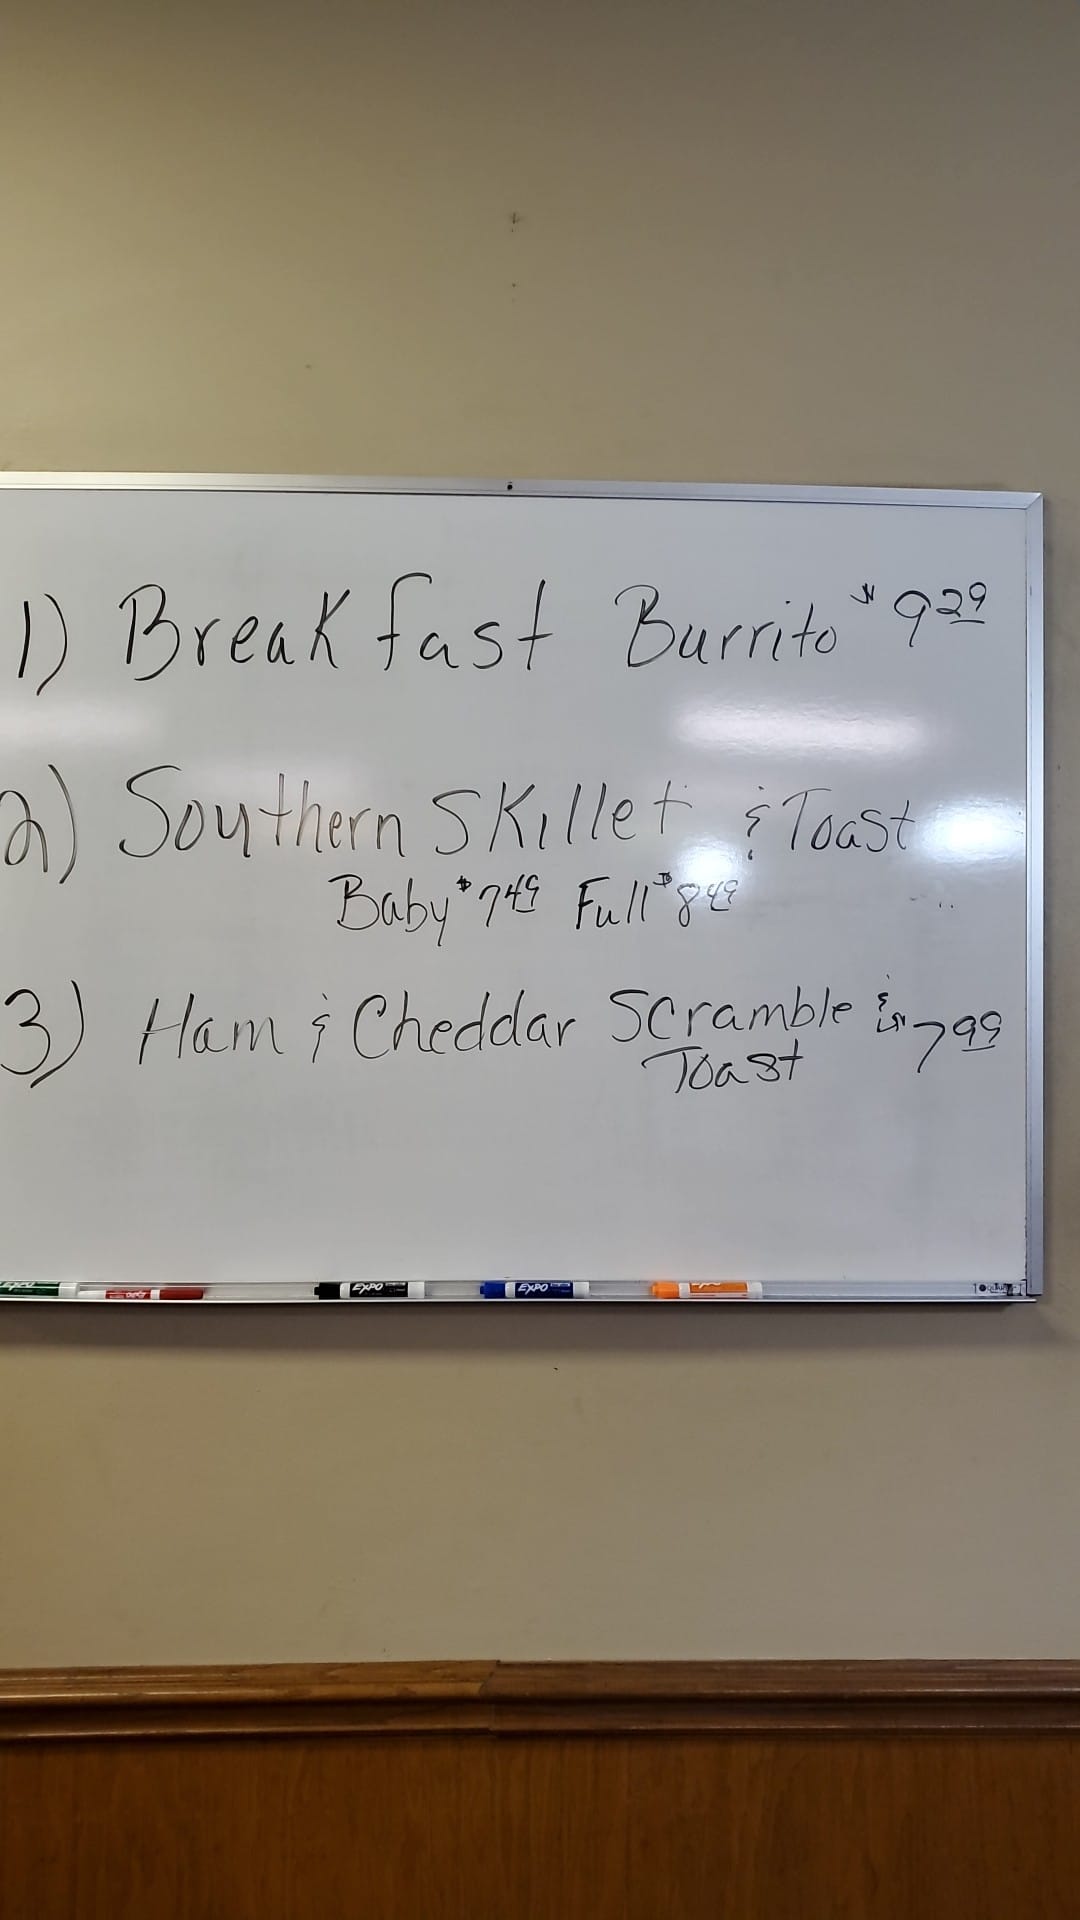 1) Breakfast Burrito $9.29
2) Southern Skillet & Toast
Baby $7.49 Full $8.49
3) Ham & Cheddar Scramble & $7.99
Toast
EXPO EXPO